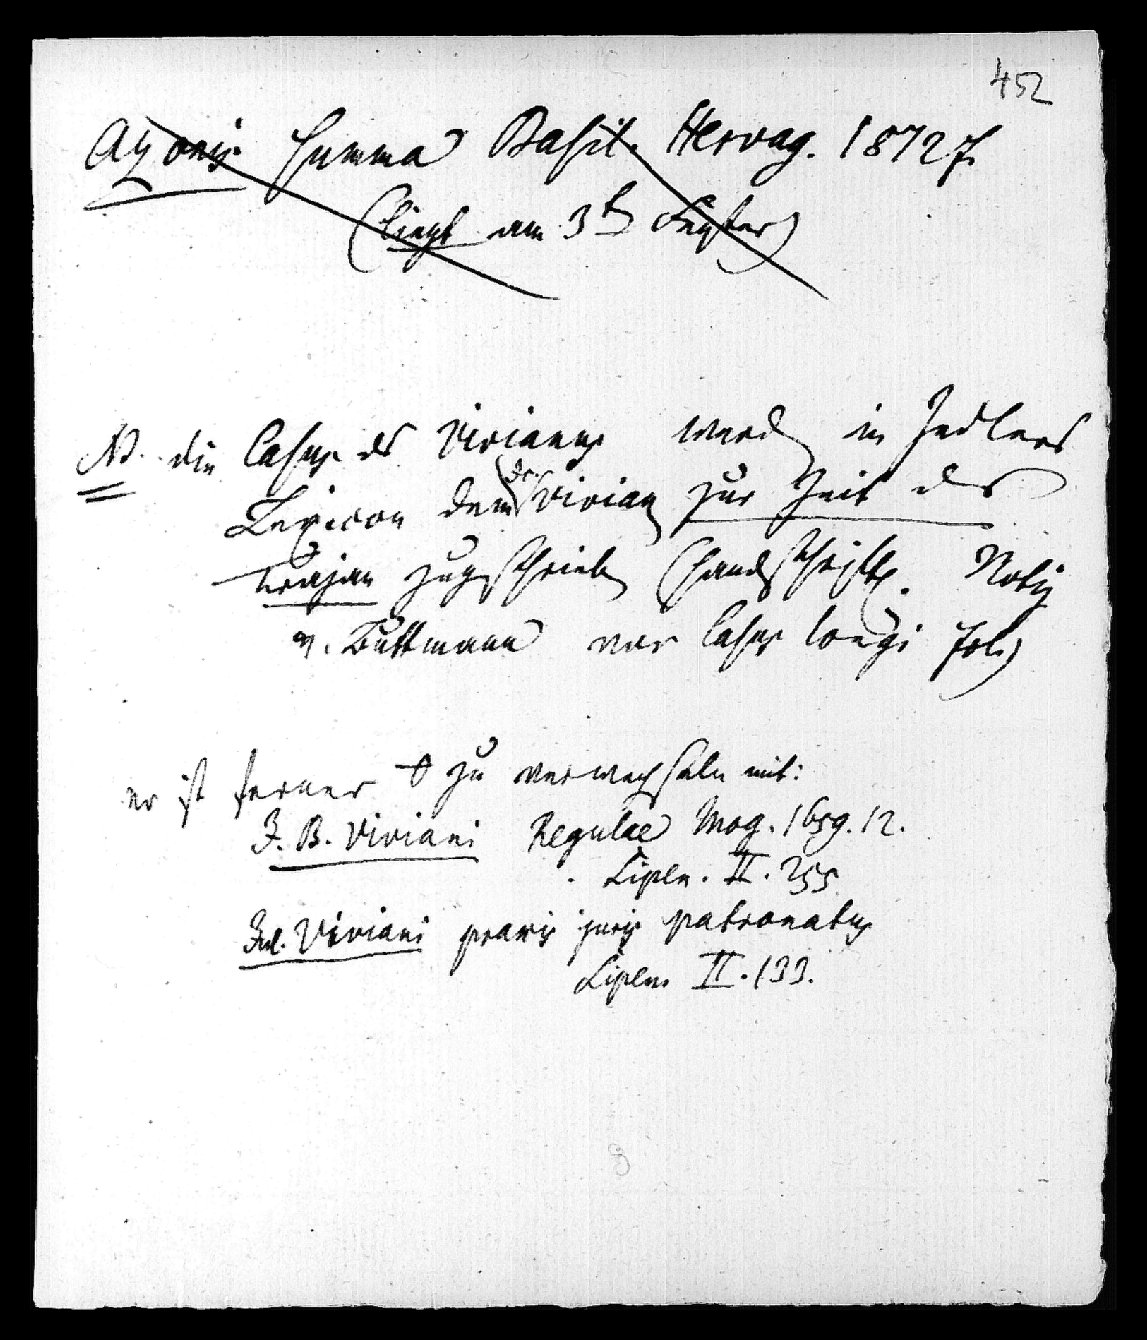 452
Azonis Summa Basil. Hervag. 1572 f.
(liegt am 3t Fenster)
NB. die Casus des Vivianus werden in Jedlers
Lexicon dem (Dr.) Vivian zur Zeit des
Trajan zugeschrieben (handschriftl. Notiz
v. Buttmann vor Casus longi Fol.)
er ist ferner zu verwechseln mit:
J. B. Viviani Regulae Mog. 1659. 12.
Lipen. II. 255
Jul. Viviani praxis juris patronatus
Lipen. II. 133.